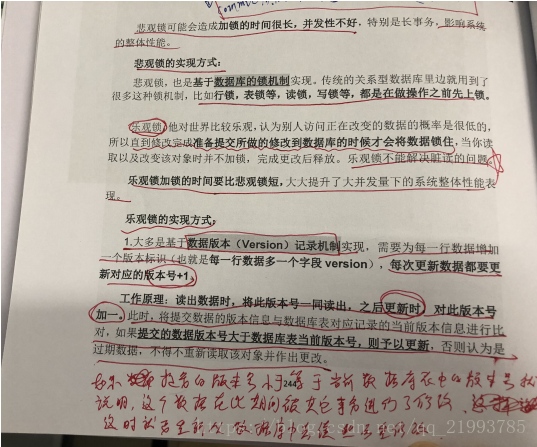 悲观锁可能会造成加锁的时间很长，并发性不好，特别是长事务，影响系统
的整体性能。
悲观锁的实现方式：
悲观锁，也是基于数据库的锁机制实现。传统的关系型数据库里边就用到了
很多这种锁机制，比如行锁，表锁等，读锁，写锁等，都是在做操作之前先上锁。
乐观锁，他对世界比较乐观，认为别人访问正在改变的数据的概率是很低的，
所以直到修改完成准备提交所做的修改到数据库的时候才会将数据锁住，当你读
取以及改变该对象时并不加锁，完成更改后释放。乐观锁不能解决脏读的问题。
乐观锁加锁的时间要比悲观锁短，大大提升了大并发量下的系统整体性能表
现。
乐观锁的实现方式：
1.大多是基于数据版本（Version）记录机制实现，需要为每一行数据增加
一个版本标识（也就是每一行数据多一个字段 version），每次更新数据都要更
新对应的版本号+1。
工作原理：读出数据时，将此版本号一同读出，之后更新时，对此版本号
加一。此时，将提交数据的版本信息与数据库表对应记录的当前版本信息进行比
对，如果提交的数据版本号大于数据库表当前版本号，则予以更新，否则认为是
过期数据，不得不重新读取该对象并作出更改。
如果 提交的版本号小于244等于当前数据库表中的版本号
说明，这个数据在此期间被其它事务进行了修改，
这时就
https://blog.csdn.net/qq_21993785